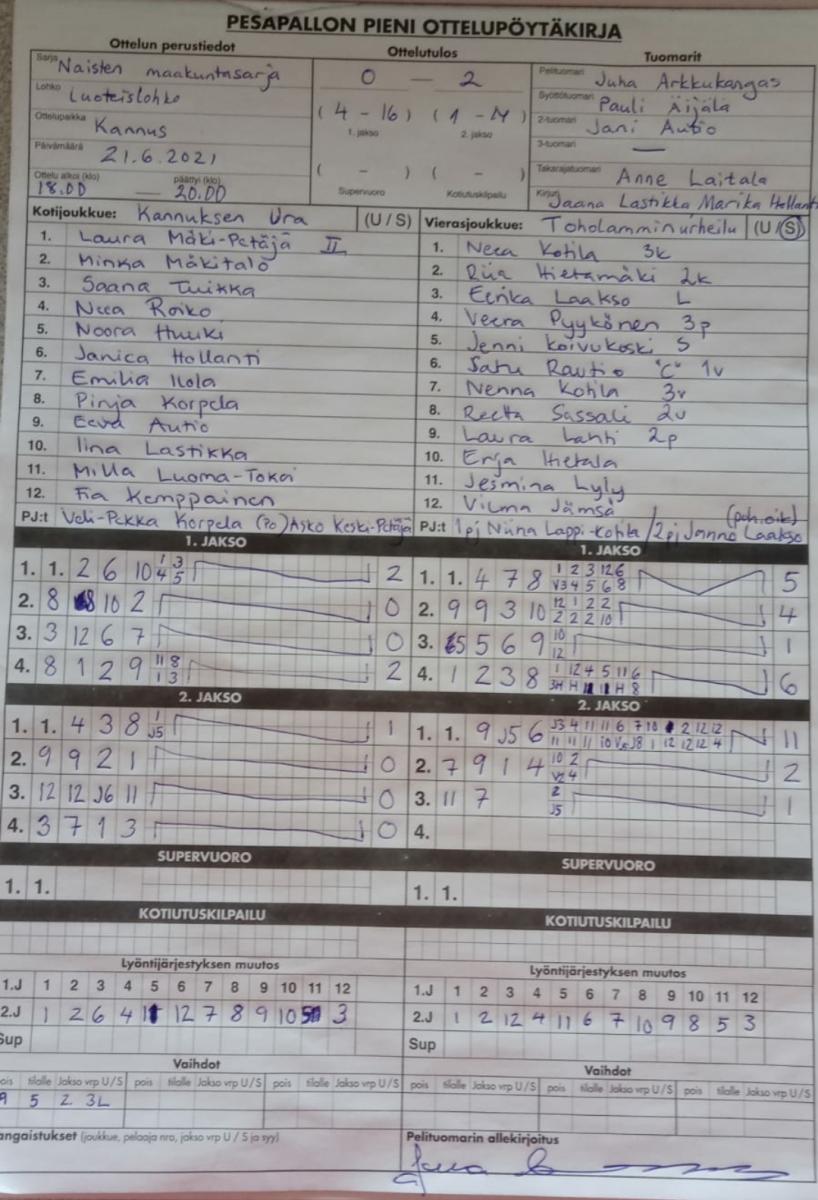 PESÄPALLON PIENI OTTELUPÖYTÄKIRJA
Ottelun perustiedot Ottelutulos Tuomarit
Sarja Naisten maakuntasarja 0 — 2 Pelituomari Juha Arkkukangas
Lohko Luoteislohko Syöttötuomari Pauli Äijälä
Ottelupaikka Kannus (4 - 16) (1 - 14) 2-tuomari Jani Autio
1. jakso 2. jakso 3-tuomari —
Päivämäärä 21.6.2021 ( - ) ( - ) Takarajatuomari Anne Laitala
Ottelu alkoi (klo) 18.00 — päättyi (klo) 20.00 Supervuoro Kotiutuskilpailu Kirjuri Jaana Lastikka Marika Hollanti
Kotijoukkue: Kannuksen Ura (U / S) Vierasjoukkue: Toholamminurheilu (U / S)
1. Laura Mäki-Petäjä II 1. Neea Kotila 3k
2. Minka Mäkitalo 2. Riia Hietamäki 2k
3. Saana Tuikka 3. Eerika Laakso L
4. Neea Roiko 4. Veera Pyykönen 3p
5. Noora Huuki 5. Jenni Koivukoski S
6. Janica Hollanti 6. Satu Rautio "C" 1v
7. Emilia Ilola 7. Nenna Kotila 3v
8. Pinja Korpela 8. Reetta Sassali 2v
9. Eeva Autio 9. Laura Lahti 2p
10. Iina Lastikka 10. Erja Hietala
11. Milla Luoma-Tokoi 11. Jesmina Lyly
12. Fia Kemppainen 12. Vilma Jämsä
PJ:t Veli-Pekka Korpela (Po) Asko Keski-Petäjä PJ:t 1pj Niina Lappi-Kotila / 2pj Janne Laakso (poh.oik)
1. JAKSO 1. JAKSO
1. 1. 2 6 10 1 3 4 5 2 1. 1. 4 7 8 1 2 3 12 6 V3 4 5 6 8 5
2. 8 10 2 0 2. 9 9 3 10 12 1 2 2 2 2 2 10 4
3. 3 12 6 7 0 3. 5 5 6 9 10 12 1
4. 8 1 2 9 11 8 1 3 2 4. 1 2 3 8 1 12 4 5 11 6 3H H 11 H 8 6
2. JAKSO 2. JAKSO
1. 1. 4 3 8 1 J5 1 1. 1. 9 J5 6 J3 4 11 11 6 7 10 2 12 12 11 11 11 10 V5 J8 1 12 12 12 4 11
2. 9 9 2 1 0 2. 7 9 1 4 10 2 V2 4 2
3. 12 12 J6 11 0 3. 11 7 2 J5 1
4. 3 7 1 3 0 4.
SUPERVUORO SUPERVUORO
1. 1. 1. 1.
KOTIUTUSKILPAILU KOTIUTUSKILPAILU
Lyöntijärjestyksen muutos Lyöntijärjestyksen muutos
1.J 1 2 3 4 5 6 7 8 9 10 11 12 1.J 1 2 3 4 5 6 7 8 9 10 11 12
2.J 1 2 6 4 11 12 7 8 9 10 5 3 2.J 1 2 12 4 11 6 7 10 9 8 5 3
Sup Sup
Vaihdot Vaihdot
pois tilalle Jakso vrp U/S pois tilalle Jakso vrp U/S pois tilalle Jakso vrp U/S pois tilalle Jakso vrp U/S pois tilalle Jakso vrp U/S pois tilalle Jakso vrp U/S
5 2 3L
angaistukset (joukkue, pelaaja nro, jakso vrp U / S ja syy) Pelituomarin allekirjoitus